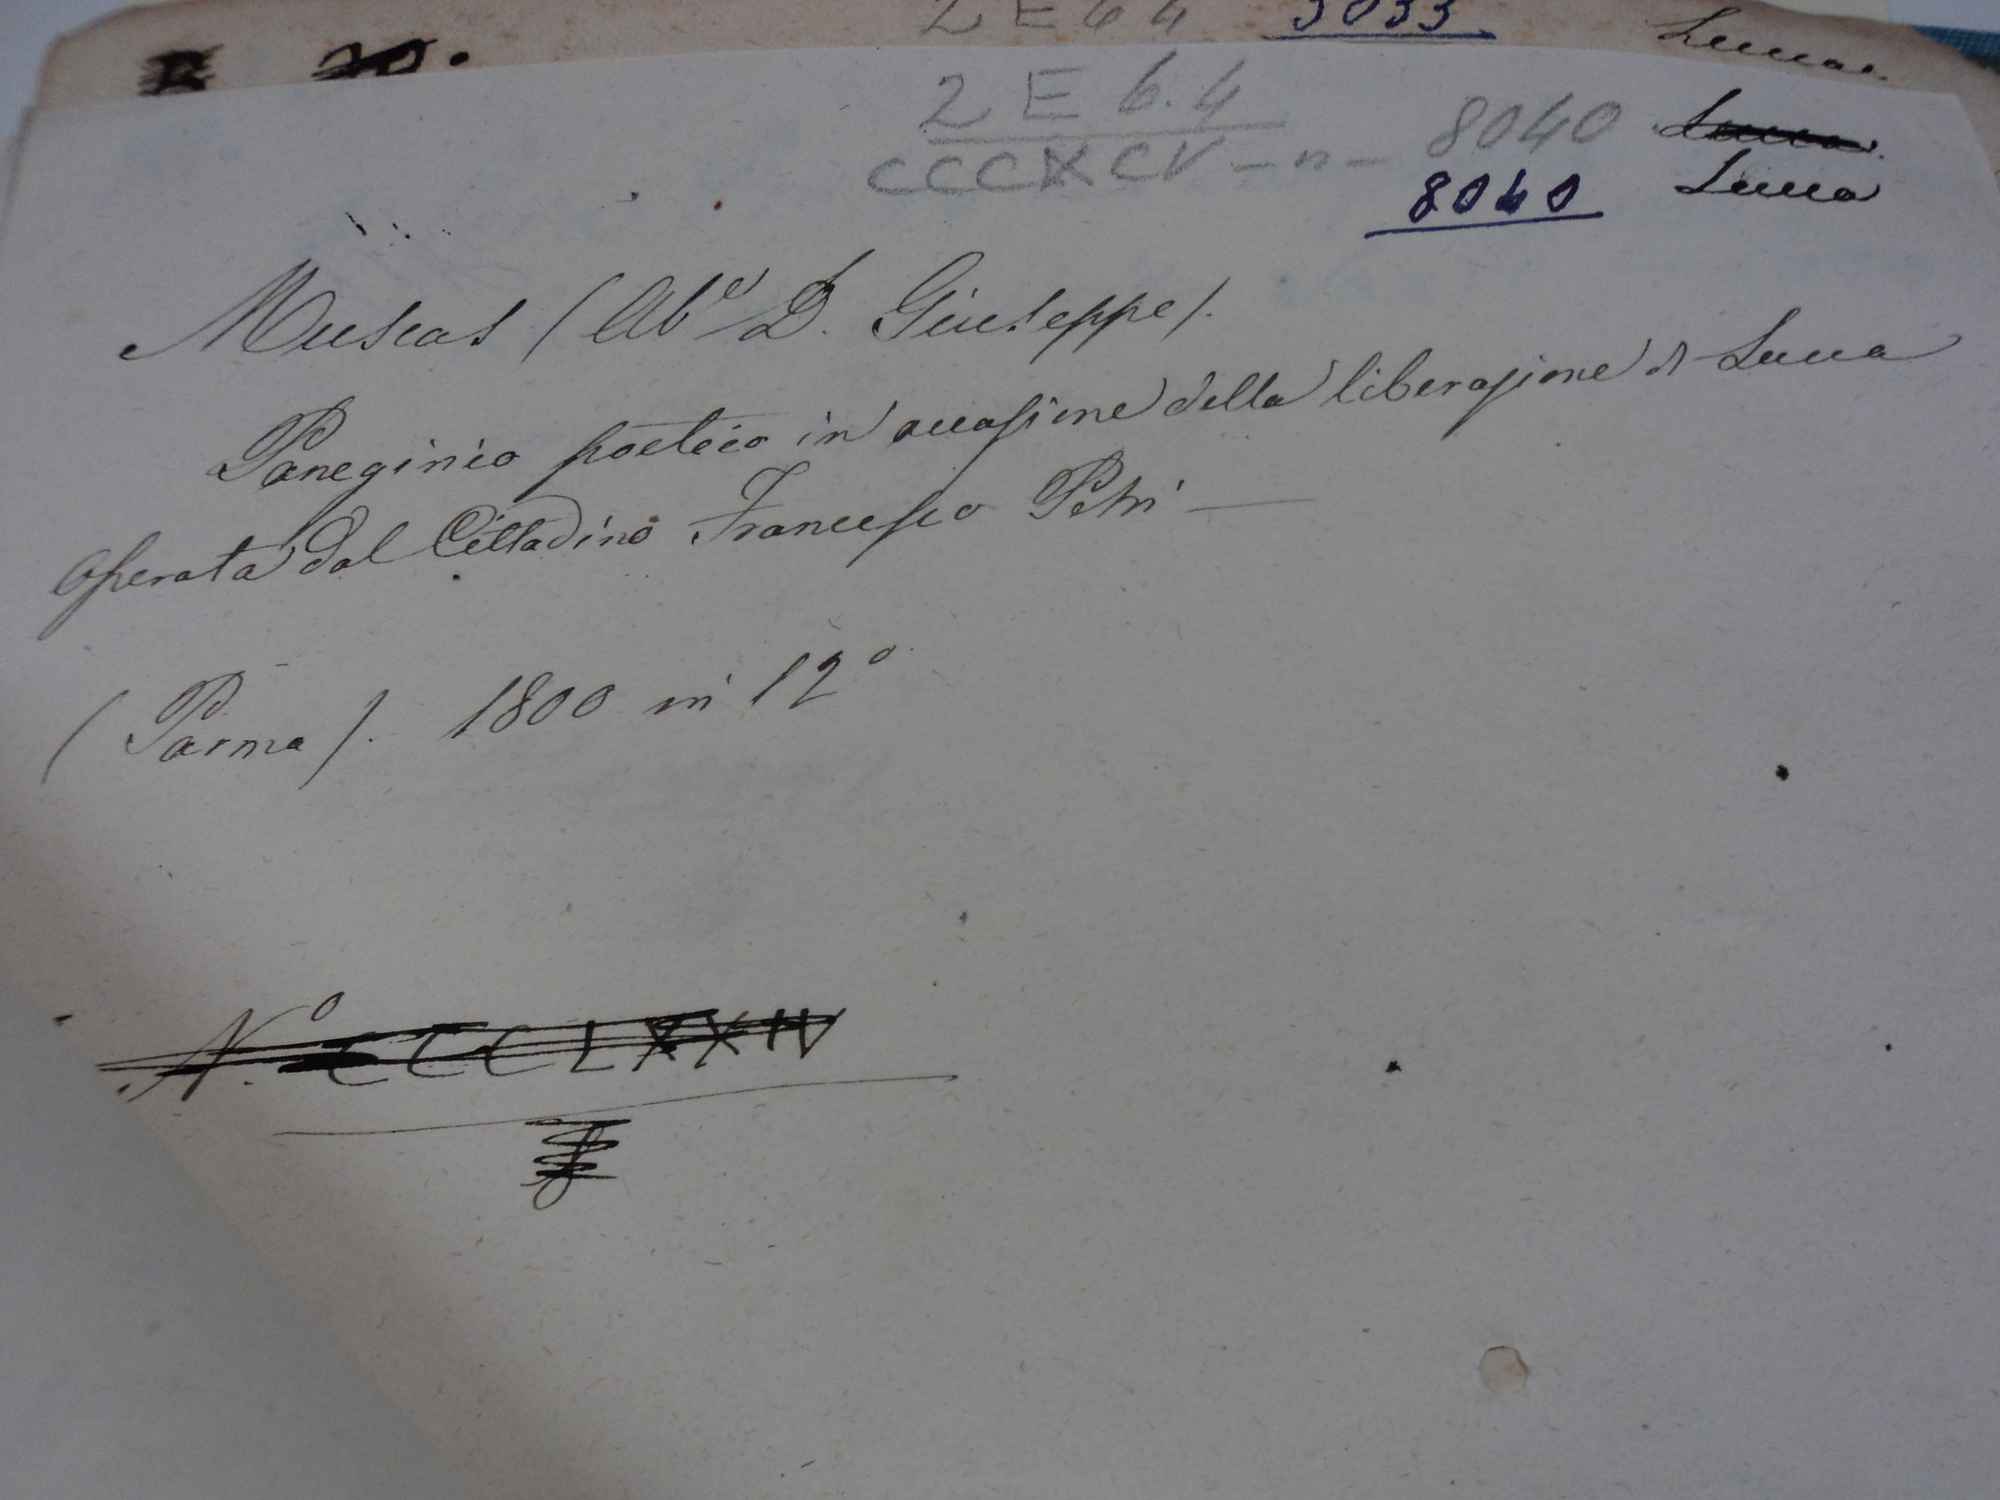 2 E 6 4 3033 Lucca.
2 E 6.4
CCCXCV - n - 8040 Lucca.
8040 Lucca
Muscas (Ab.e D. Giuseppe).
Panegirico poetico in occasione della liberazione di Lucca
operata dal Cittadino Francesco Petri —
(Parma). 1800 in 12º
N.º CCCLXXIV